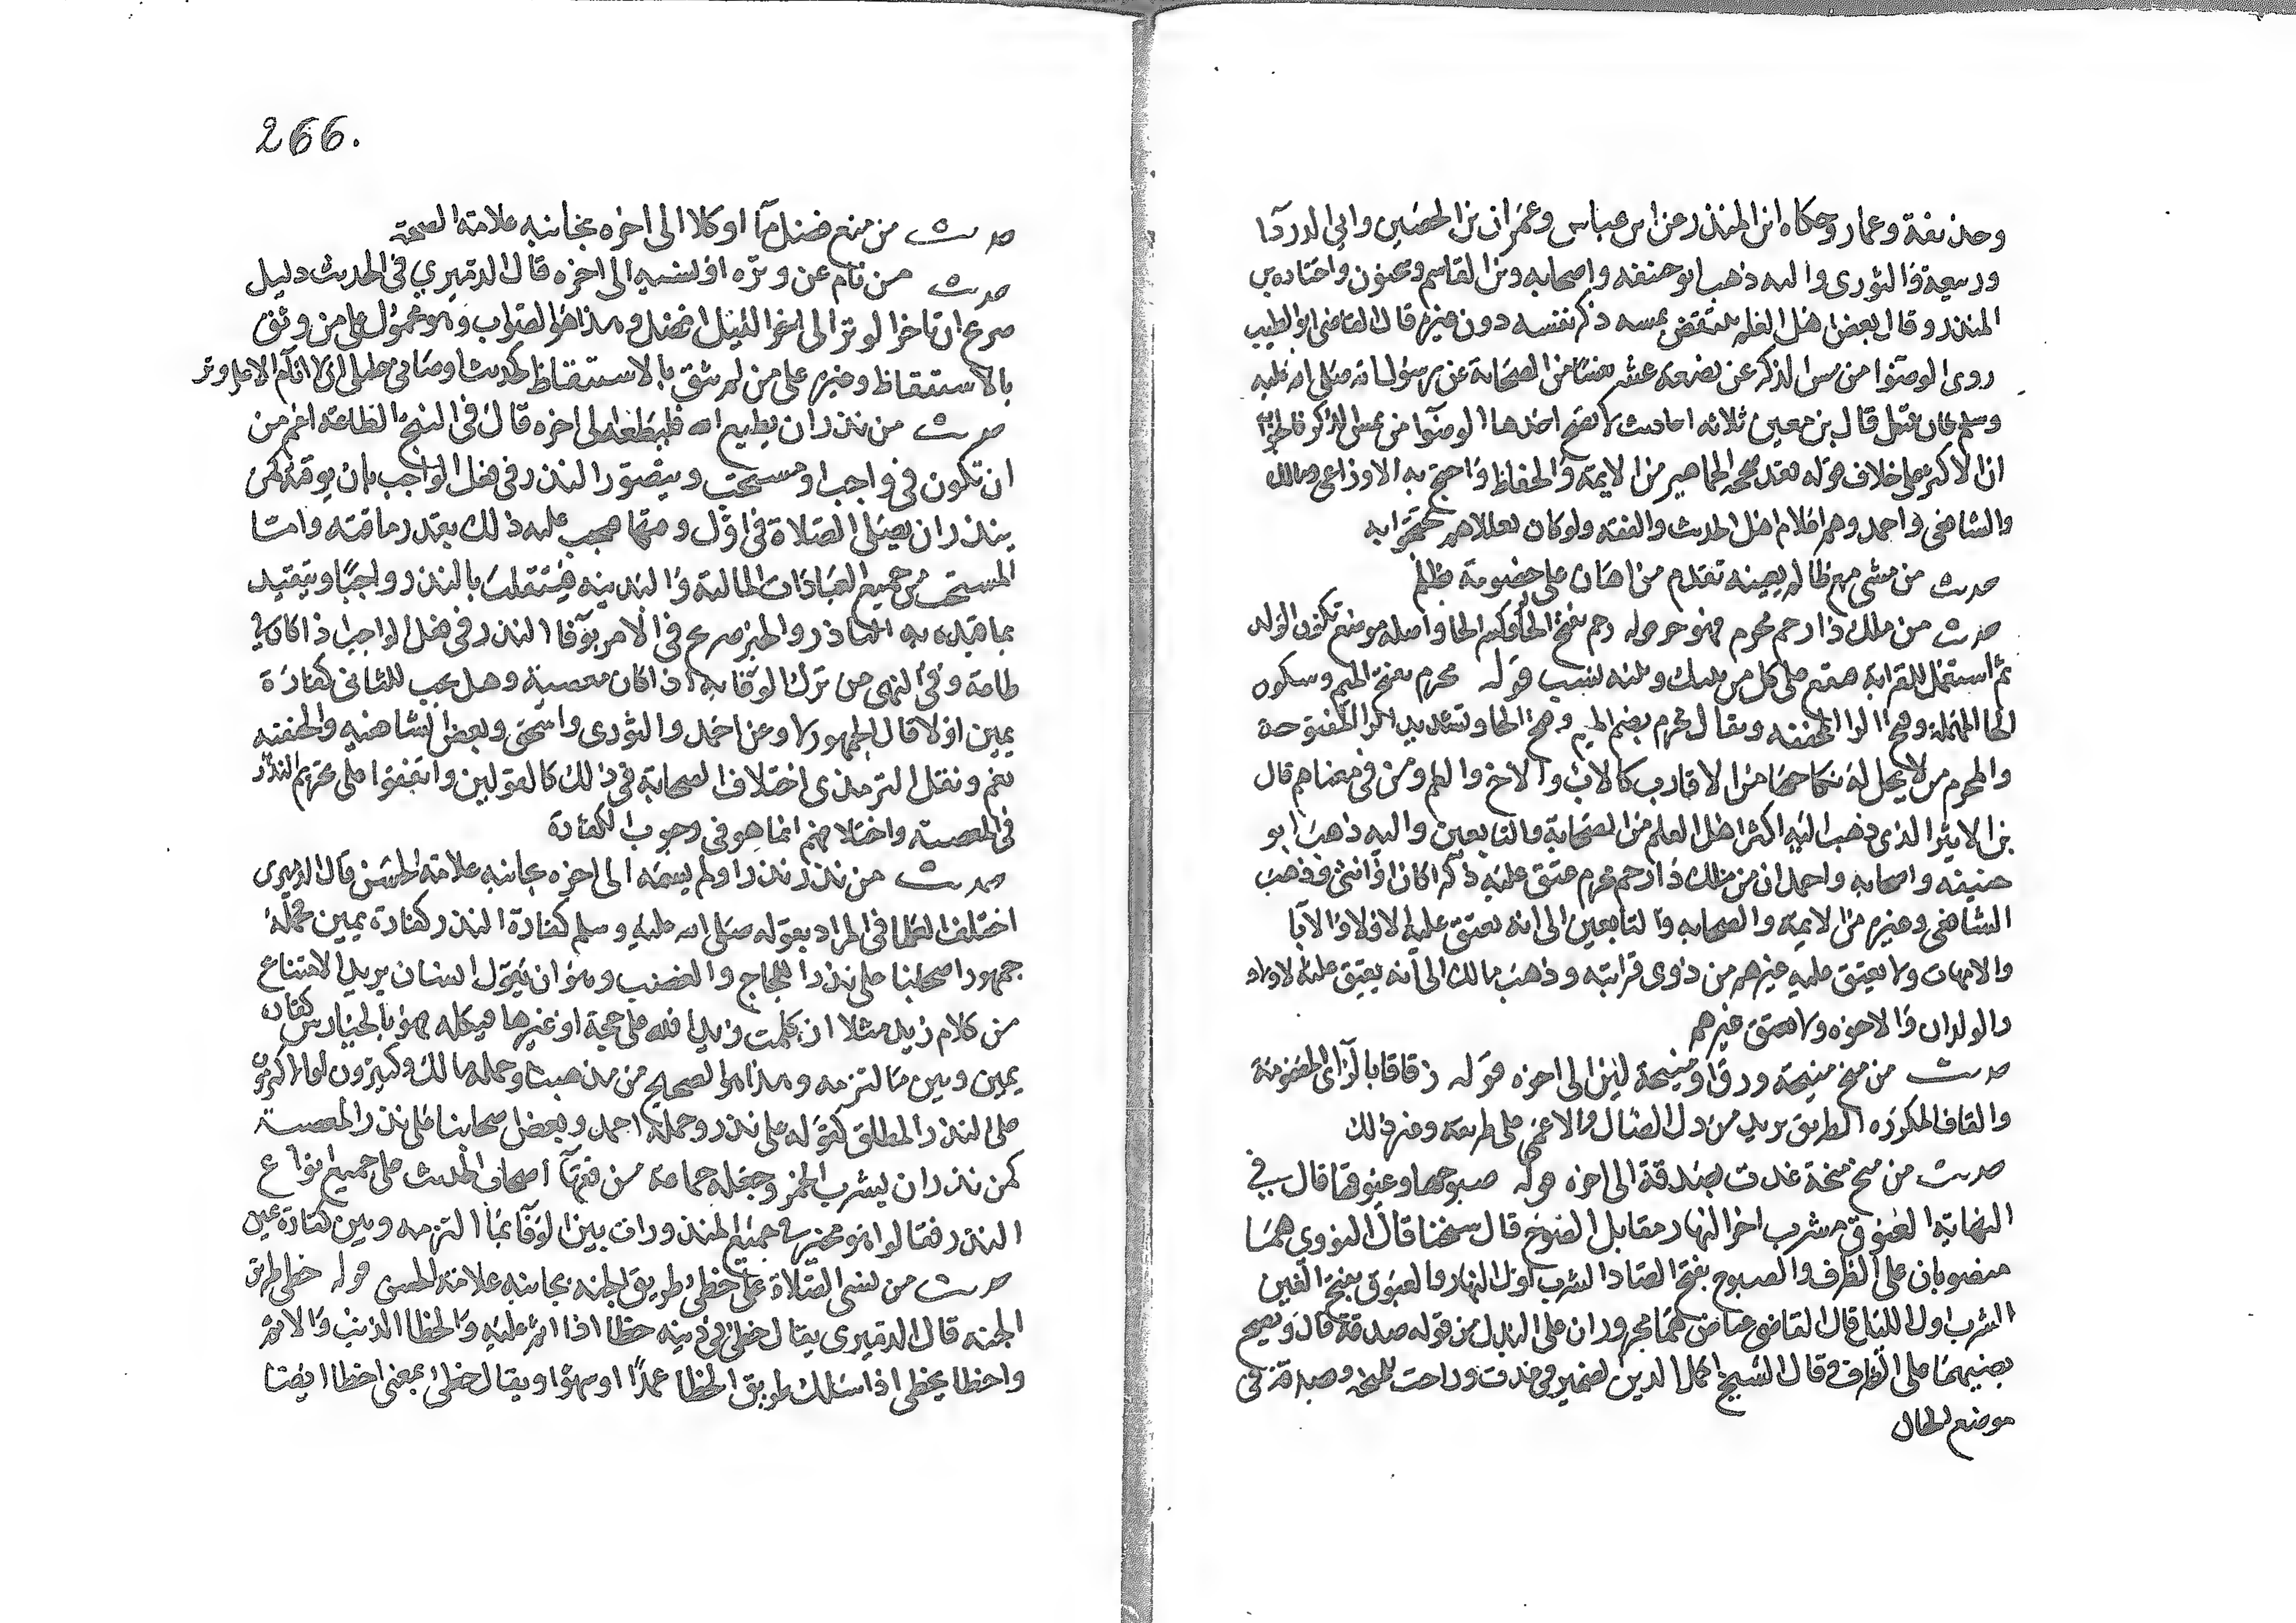 وحذيفة وعمار وحكاه ابن المنذر عن ابن عباس وعمران بن الحصين وابي الدردآ
وربيعة والثوري واليه ذهب ابو حنيفة واصحابه وبن القاسم وسحنون واختاره بن
المنذر وقال بعض اهل العلم ينتقض بمسه ذكر نفسه دون غيره قال القاضي ابو الطيب
روى الوضوا من مس الذكر عن بضعة عشر نفسا من الصحابة عن رسول الله صلى الله عليه
وسلم فان قيل قال بن معين ثلاثه احاديث لا يصح احدها الوضوا من مس الذكر فالجواب
ان الاكثر على خلاف قوله فقد صححه الجماهير من الايمة والحفاظ واحتج به الاوزاعي ومالك
والشافعي واحمد وهم اعلام اهل الحديث والفقه ولو كان باطلا لم يحتجوا به
حديث من مشى مع ظالم يعينه تقدم من اعان على خصومة بظلم
حديث من ملك ذا رحم محرم فهو حر قوله رحم بفتح الرا وكسر الحا واصله موضع تكون الولد
ثم استعمل للقرابة فيقع على كل من بينك وبينه نسب قوله محرم بفتح الميم وسكون
الحا المهملة وفتح الرا المخففه ويقال محرم بضم الميم وفتح الحا وتشديد الرا المفتوحة
والمحرم من لا يحل له نكاحها من الاقارب كالاب والاخ والعم ومن في معناهم قال
بن الاثير الذي ذهب اليه اكثر اهل العلم من الصحابة والتابعين واليه ذهب ابو
حنيفه واصحابه واحمد ان من ملك ذا رحم محرم عتق عليه ذكرا كان او انثى وذهب
الشافعي وغيره من الايمة والصحابه والتابعين الى انه يعتق عليه الاولاد والابا
والامهات ولا يعتق عليه غيرهم من ذوي قرابته وذهب مالك الى انه يعتق عليه الاولاد
والوالدان والاخوه ولا يعتق غيرهم
حديث من منح منيحة ورق او منيحة لبن الى اخره قوله زقاقا بالزاي المضمومة
والقاف المكرره الطريق يريد من دل الضال والاعمى على طريقه وغير ذلك
حديث من منح منحة غدت بصدقة الى اخره قوله صبوحها وغبوقها قال في
النهاية الغبوق شرب اخر النهار مقابل الصبوح قال شيخنا قال النووي هما
منصوبان على الظرف والصبوح بفتح الصاد الشرب اول النهار والغبوق بفتح الغين
الشرب اول الليل قال القاضي عياض هما مجروران على البدل من قوله صدقة قال ويصح
نصبهما على الظرف وقال الشيخ اكمل الدين الضمير في غدت وراحت للمنحة وصدقة في
موضع الحال
266.
حديث من منع فضل مآ او كلا الى اخره بجانبه علامة الصحة
حديث من نام عن وتره او نسيه الى اخره قال الدميري في الحديث دليل
صريح ان تاخير الوتر الى اخر الليل افضل وهذا هو الصواب وهو محمول على من وثق
بالاستيقاظ وغيره على من لم يثق بالاستيقاظ لحديث اوصاني خليلي ان لا انام الا على وتر
حديث من نذر ان يطيع الله فليطعه الى اخره قال في الفتح الطاعة اعم من
ان تكون في واجب او مستحب ويتصور النذر في فعل الواجب بان يوقته كمن
ينذر ان يصلي الصلاة في اول وقتها فيجب عليه ذلك بقدر ما اقته واما
المستحب من جميع العبادات المالية والبدنيه فينقلب بالنذر واجبا ويتقيد
بما قيده به الناذر والخبر صريح في الامر بوفآ النذر في فعل الواجب اذا كان في
طاعة وفي النهي من ترك الوفا به اذا كان معصية وهل يجب للثاني كفارة
يمين اولا قال الجمهور لا وعن احمد والثوري واسحق وبعض الشافعيه والحنفيه
نعم ونقل الترمذي اختلاف الصحابة في ذلك كالقولين واتفقوا على تحريم النذر
في المعصية واختلافهم انما هو في وجوب الكفارة
حديث من نذر نذرا ولم يسمه الى اخره بجانبه علامة الحسن قال الدميري
اختلف العلما في المراد بقوله صلى الله عليه وسلم كفارة النذر كفارة يمين فحمله
جمهور اصحابنا على نذر اللجاج والغضب وهو ان يقول انسان يريد الامتناع
من كلام زيد مثلا ان كلمت زيدا فلله علي حجة او غيرها فيكلمه فهو بالخيار بين كفارة
يمين وبين ما التزمه وهذا هو الصحيح من مذهبنا وحمله مالك وكثيرون او الاكثرون
على النذر المطلق كقوله علي نذر وحمله احمد وبعض اصحابنا على نذر المعصية
كمن نذر ان يشرب الخمر وجعله جماعة من فقهآ اصحاب الحديث على جميع انواع
النذر فقالوا هو مخير في جميع المنذورات بين الوفآ بما التزمه وبين كفارة يمين
حديث من نسي الصلاة علي خطئ طريق الجنه بجانبه علامة الحسن قوله خطي طريق
الجنه قال الدميري يقال خطئ في دينه خطا اذا اثم عليه والخطا الذنب والاثم
واخطا يخطي اذا سلك طريق الخطا عمدا او سهوا ويقال خطئ بمعنى اخطا ايضا